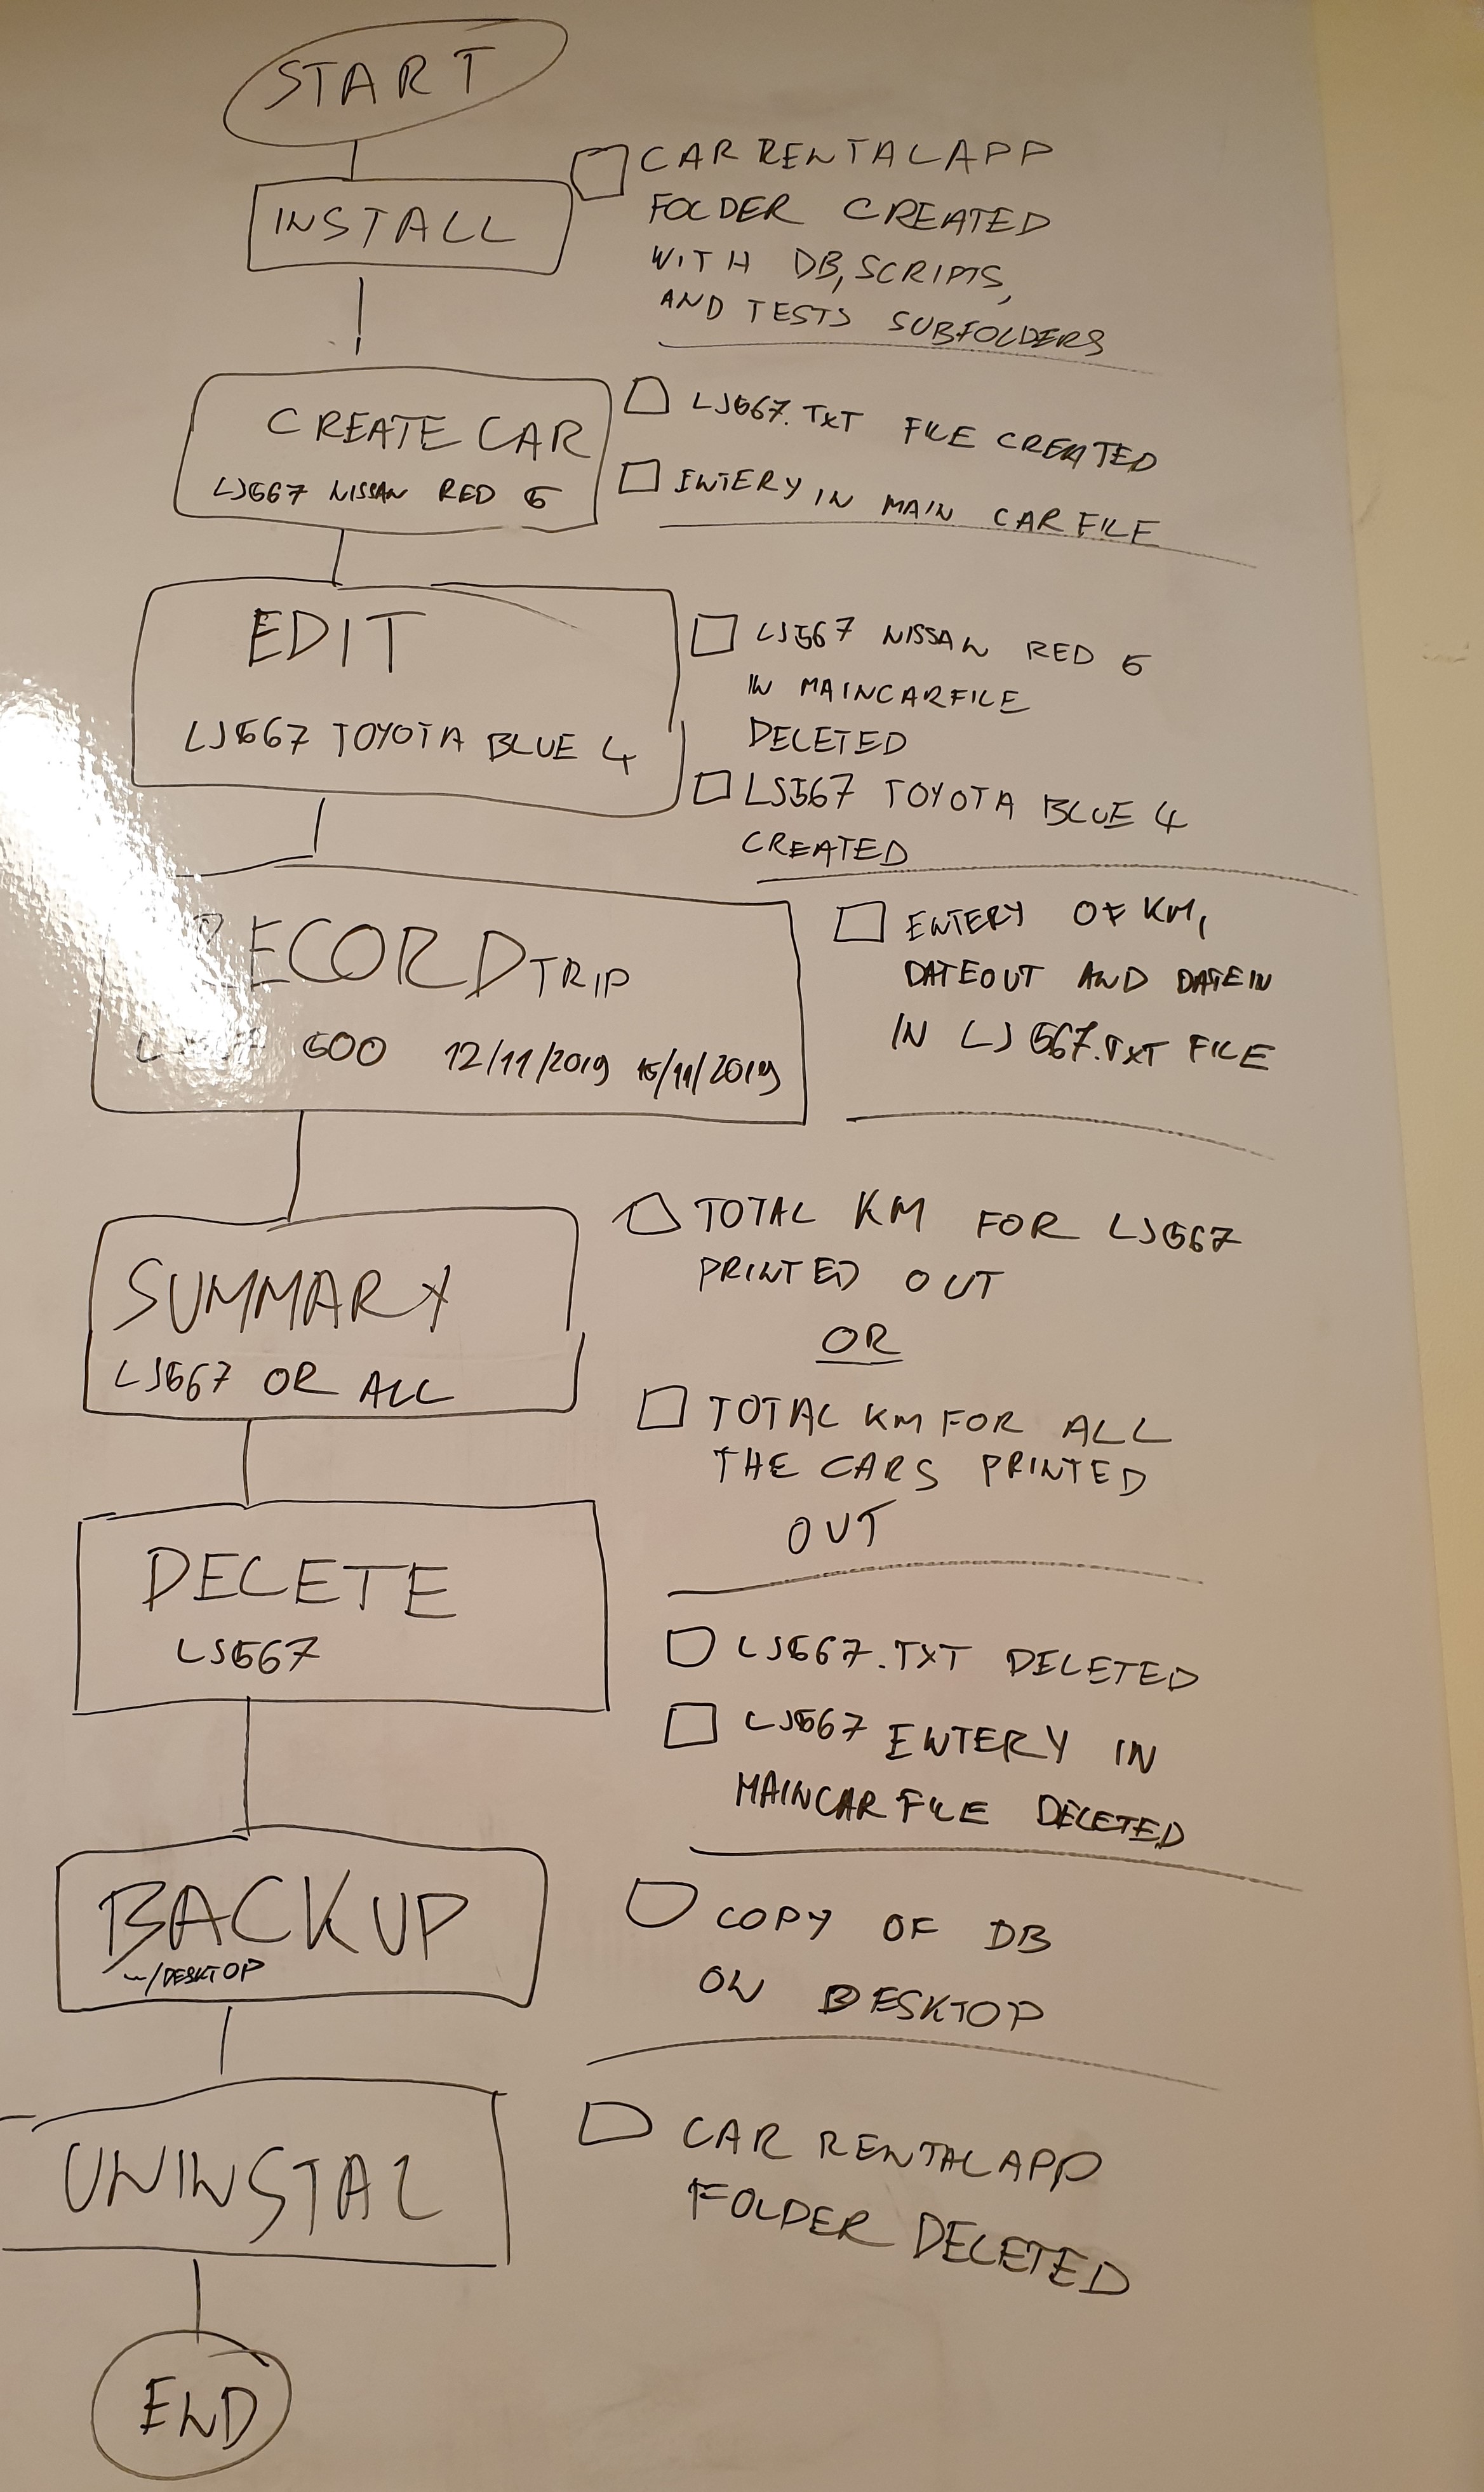 START
INSTALL
CAR RENTALAPP
FOLDER CREATED
WITH DB, SCRIPTS,
AND TESTS SUBFOLDERS
CREATE CAR
LJ567 NISSAN RED 5
LJ567.TXT FILE CREATED
ENTERY IN MAIN CAR FILE
EDIT
LJ567 TOYOTA BLUE 4
LJ567 NISSAN RED 5
IN MAINCARFILE
DELETED
LJ567 TOYOTA BLUE 4
CREATED
RECORD TRIP
500 12/11/2019 15/11/2019
ENTERY OF KM,
DATEOUT AND DATEIN
IN LJ567.TXT FILE
SUMMARY
LJ567 OR ALL
TOTAL KM FOR LJ567
PRINTED OUT
OR
TOTAL KM FOR ALL
THE CARS PRINTED
OUT
DELETE
LJ567
LJ567.TXT DELETED
LJ567 ENTERY IN
MAINCAR FILE DELETED
BACKUP
~/DESKTOP
COPY OF DB
ON DESKTOP
UNINSTAL
CAR RENTALAPP
FOLDER DELETED
END